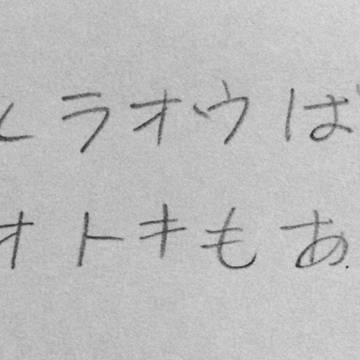 ラオウば
オトキもあ